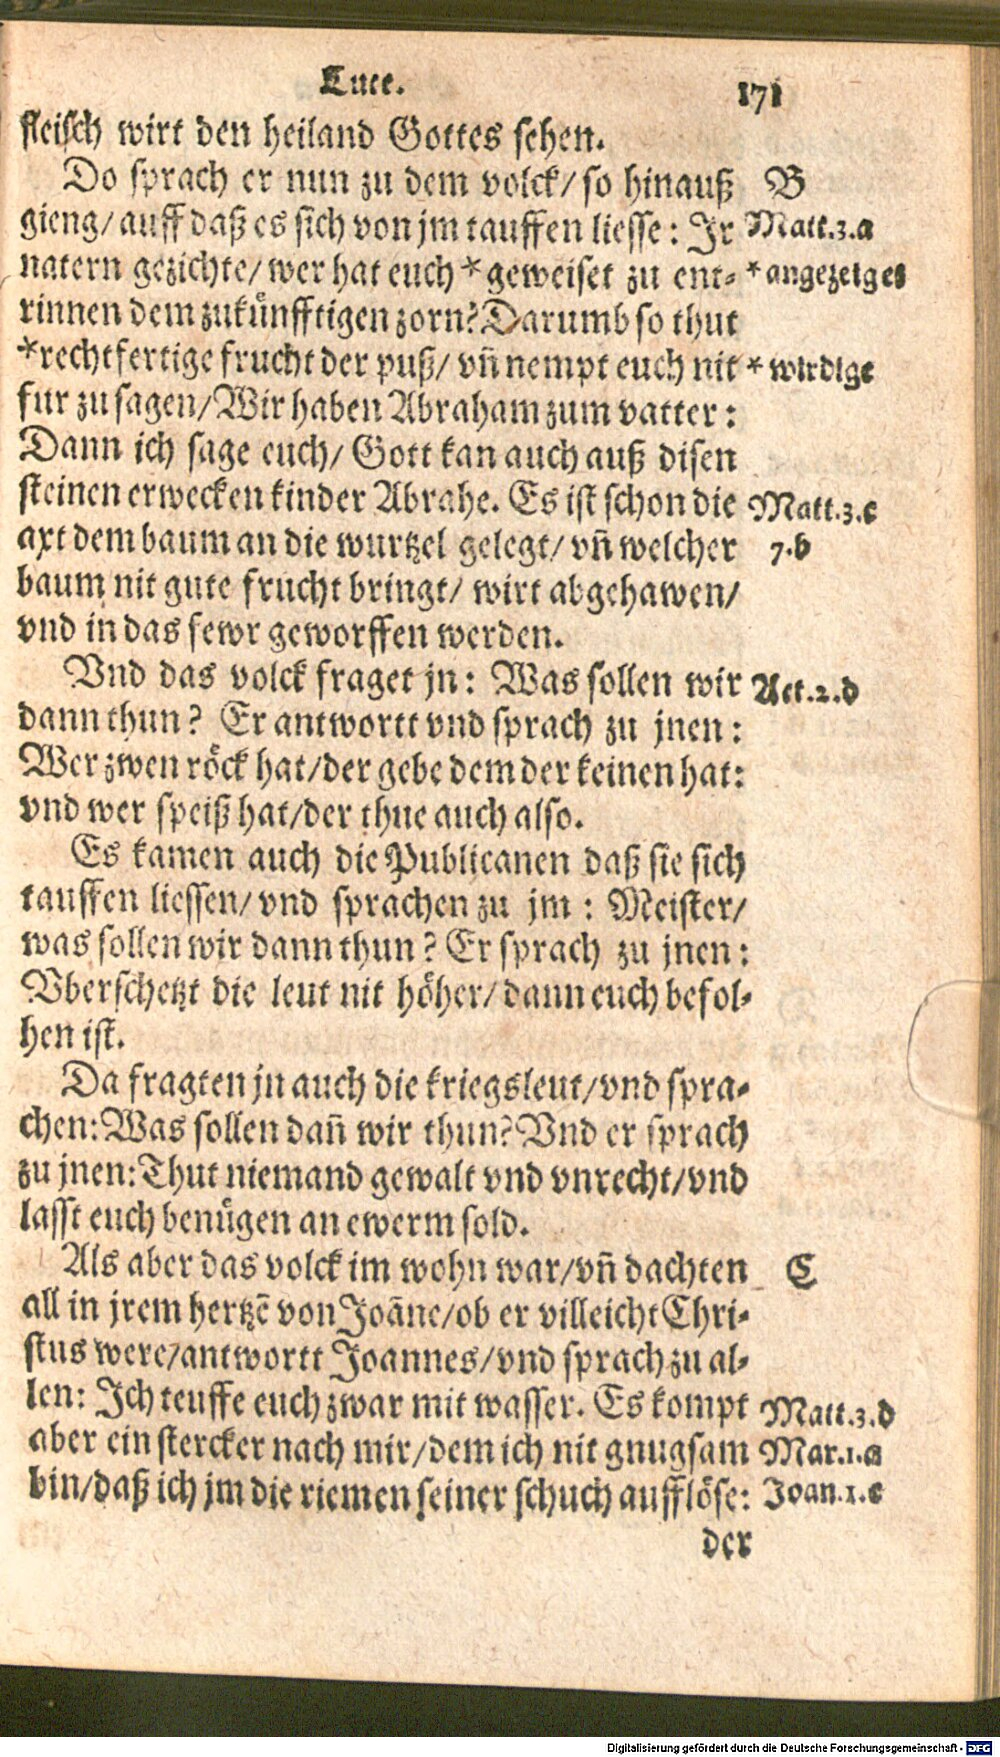 Luce. 171
fleisch wirt den heiland Gottes sehen.
Do sprach er nun zu dem volck/ so hinauß B
gieng/ auff daß es sich von jm tauffen liesse: Jr Matt.3.a
natern gezichte/ wer hat euch *geweiset zu ent- *angezeiget
rinnen dem zukünfftigen zorn? Darumb so thut
*rechtfertige frucht der puß/ vñ nempt euch nit *wirdige
fur zu sagen/ Wir haben Abraham zum vatter:
Dann ich sage euch/ Gott kan auch auß disen
steinen erwecken kinder Abrahe. Es ist schon die Matt.3.c
axt dem baum an die wurtzel gelegt/ vñ welcher 7.b
baum nit gute frucht bringt/ wirt abgehawen/
vnd in das fewr geworffen werden.
Vnd das volck fraget jn: Was sollen wir Act.2.d
dann thun? Er antwortt vnd sprach zu jnen:
Wer zwen röck hat/ der gebe dem der keinen hat:
vnd wer speiß hat/ der thue auch also.
Es kamen auch die Publicanen daß sie sich
tauffen liessen/ vnd sprachen zu jm: Meister/
was sollen wir dann thun? Er sprach zu jnen:
Vberschetzt die leut nit höher/ dann euch befol-
hen ist.
Da fragten jn auch die kriegsleut/ vnd spra-
chen: Was sollen dañ wir thun? Vnd er sprach
zu jnen: Thut niemand gewalt vnd vnrecht/ vnd
lasst euch benügen an ewerm sold.
Als aber das volck im wohn war/ vñ dachten C
all in jrem hertzē von Joāne/ ob er villeicht Chri-
stus were/ antwortt Joannes/ vnd sprach zu al-
len: Ich teuffe euch zwar mit wasser. Es kompt Matt.3.d
aber ein stercker nach mir/ dem ich nit gnugsam Mar.1.a
bin/ daß ich jm die riemen seiner schuch aufflöse: Joan.1.c
der
Digitalisierung gefördert durch die Deutsche Forschungsgemeinschaft - DFG